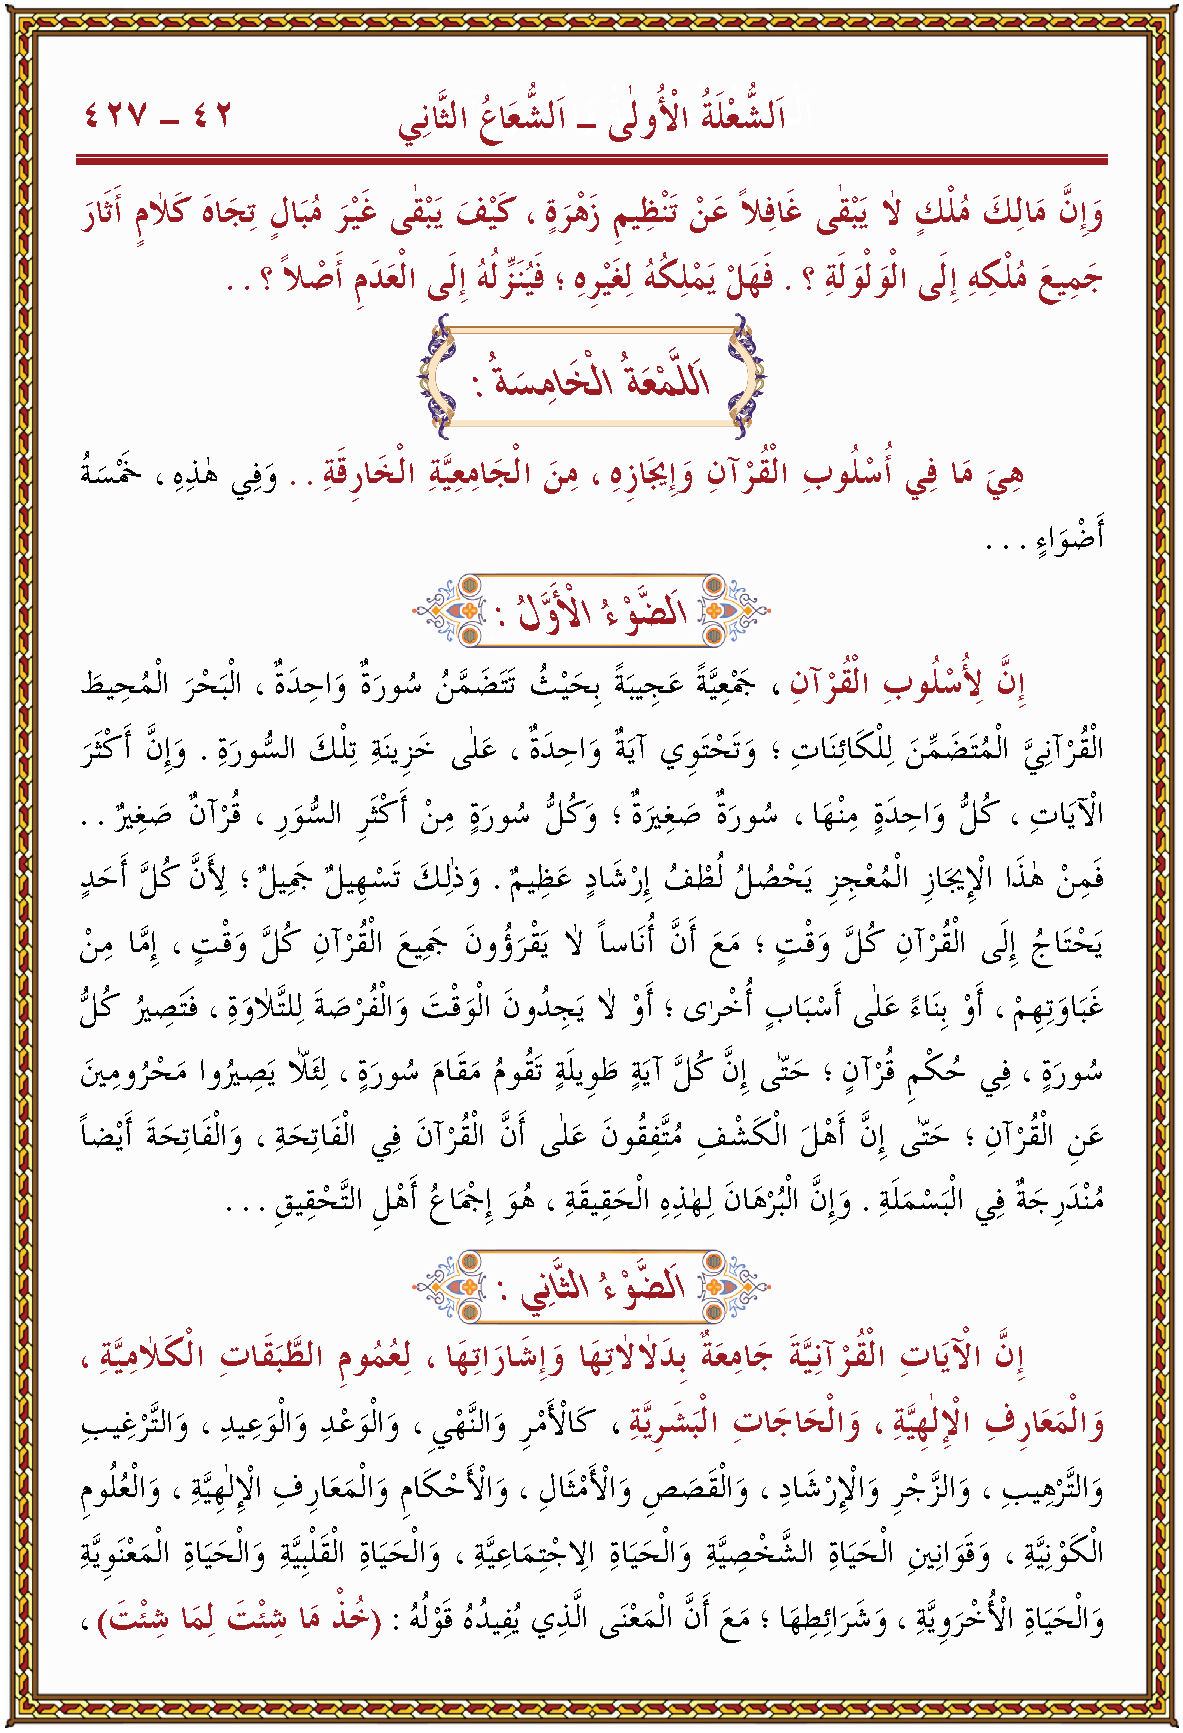 اَلشُّعْلَةُ الْأُولٰى – اَلشُّعَاعُ الثَّانِي ٤٢ – ٤٢٧
وَإِنَّ مَالِكَ مُلْكٍ لَا يَبْقٰى غَافِلاً عَنْ تَنْظِيمِ زَهْرَةٍ ، كَيْفَ يَبْقٰى غَيْرَ مُبَالٍ تِجَاهَ كَلَامٍ أَثَارَ
جَمِيعَ مُلْكِهِ إِلَى الْوَلْوَلَةِ ؟ . فَهَلْ يَمْلِكُهُ لِغَيْرِهِ ؛ فَيُنَزِّلُهُ إِلَى الْعَدَمِ أَصْلاً ؟ . .
اَللَّمْعَةُ الْخَامِسَةُ :
هِيَ مَا فِي أُسْلُوبِ الْقُرْآنِ وَإِيجَازِهِ ، مِنَ الْجَامِعِيَّةِ الْخَارِقَةِ . . وَفِي هٰذِهِ ، خَمْسَةُ
أَضْوَاءٍ . . .
اَلضَّوْءُ الْأَوَّلُ :
إِنَّ لِأُسْلُوبِ الْقُرْآنِ ، جَمْعِيَّةً عَجِيبَةً بِحَيْثُ تَتَضَمَّنُ سُورَةٌ وَاحِدَةٌ ، الْبَحْرَ الْمُحِيطَ
الْقُرْآنِيَّ الْمُتَضَمِّنَ لِلْكَائِنَاتِ ؛ وَتَحْتَوِي آيَةٌ وَاحِدَةٌ ، عَلٰى خَزِينَةِ تِلْكَ السُّورَةِ . وَإِنَّ أَكْثَرَ
الْآيَاتِ ، كُلُّ وَاحِدَةٍ مِنْهَا ، سُورَةٌ صَغِيرَةٌ ؛ وَكُلُّ سُورَةٍ مِنْ أَكْثَرِ السُّوَرِ ، قُرْآنٌ صَغِيرٌ . .
فَمِنْ هٰذَا الْإِيجَازِ الْمُعْجِزِ يَحْصُلُ لُطْفُ إِرْشَادٍ عَظِيمٌ . وَذٰلِكَ تَسْهِيلٌ جَمِيلٌ ؛ لِأَنَّ كُلَّ أَحَدٍ
يَحْتَاجُ إِلَى الْقُرْآنِ كُلَّ وَقْتٍ ؛ مَعَ أَنَّ أُنَاساً لَا يَقْرَؤُونَ جَمِيعَ الْقُرْآنِ كُلَّ وَقْتٍ ، إِمَّا مِنْ
غَبَاوَتِهِمْ ، أَوْ بِنَاءً عَلٰى أَسْبَابٍ أُخْرٰى ؛ أَوْ لَا يَجِدُونَ الْوَقْتَ وَالْفُرْصَةَ لِلتِّلَاوَةِ ، فَتَصِيرُ كُلُّ
سُورَةٍ ، فِي حُكْمِ قُرْآنٍ ؛ حَتّٰى إِنَّ كُلَّ آيَةٍ طَوِيلَةٍ تَقُومُ مَقَامَ سُورَةٍ ، لِئَلَّا يَصِيرُوا مَحْرُومِينَ
عَنِ الْقُرْآنِ ؛ حَتّٰى إِنَّ أَهْلَ الْكَشْفِ مُتَّفِقُونَ عَلٰى أَنَّ الْقُرْآنَ فِي الْفَاتِحَةِ ، وَالْفَاتِحَةَ أَيْضاً
مُنْدَرِجَةٌ فِي الْبَسْمَلَةِ . وَإِنَّ الْبُرْهَانَ لِهٰذِهِ الْحَقِيقَةِ ، هُوَ إِجْمَاعُ أَهْلِ التَّحْقِيقِ . . .
اَلضَّوْءُ الثَّانِي :
إِنَّ الْآيَاتِ الْقُرْآنِيَّةَ جَامِعَةٌ بِدَلَالَاتِهَا وَإِشَارَاتِهَا ، لِعُمُومِ الطَّبَقَاتِ الْكَلَامِيَّةِ ،
وَالْمَعَارِفِ الْإِلٰهِيَّةِ ، وَالْحَاجَاتِ الْبَشَرِيَّةِ ، كَالْأَمْرِ وَالنَّهْيِ ، وَالْوَعْدِ وَالْوَعِيدِ ، وَالتَّرْغِيبِ
وَالتَّرْهِيبِ ، وَالزَّجْرِ وَالْإِرْشَادِ ، وَالْقَصَصِ وَالْأَمْثَالِ ، وَالْأَحْكَامِ وَالْمَعَارِفِ الْإِلٰهِيَّةِ ، وَالْعُلُومِ
الْكَوْنِيَّةِ ، وَقَوَانِينِ الْحَيَاةِ الشَّخْصِيَّةِ وَالْحَيَاةِ الِاجْتِمَاعِيَّةِ ، وَالْحَيَاةِ الْقَلْبِيَّةِ وَالْحَيَاةِ الْمَعْنَوِيَّةِ
وَالْحَيَاةِ الْأُخْرَوِيَّةِ ، وَشَرَائِطِهَا ؛ مَعَ أَنَّ الْمَعْنَى الَّذِي يُفِيدُهُ قَوْلُهُ : (خُذْ مَا شِئْتَ لِمَا شِئْتَ) ،